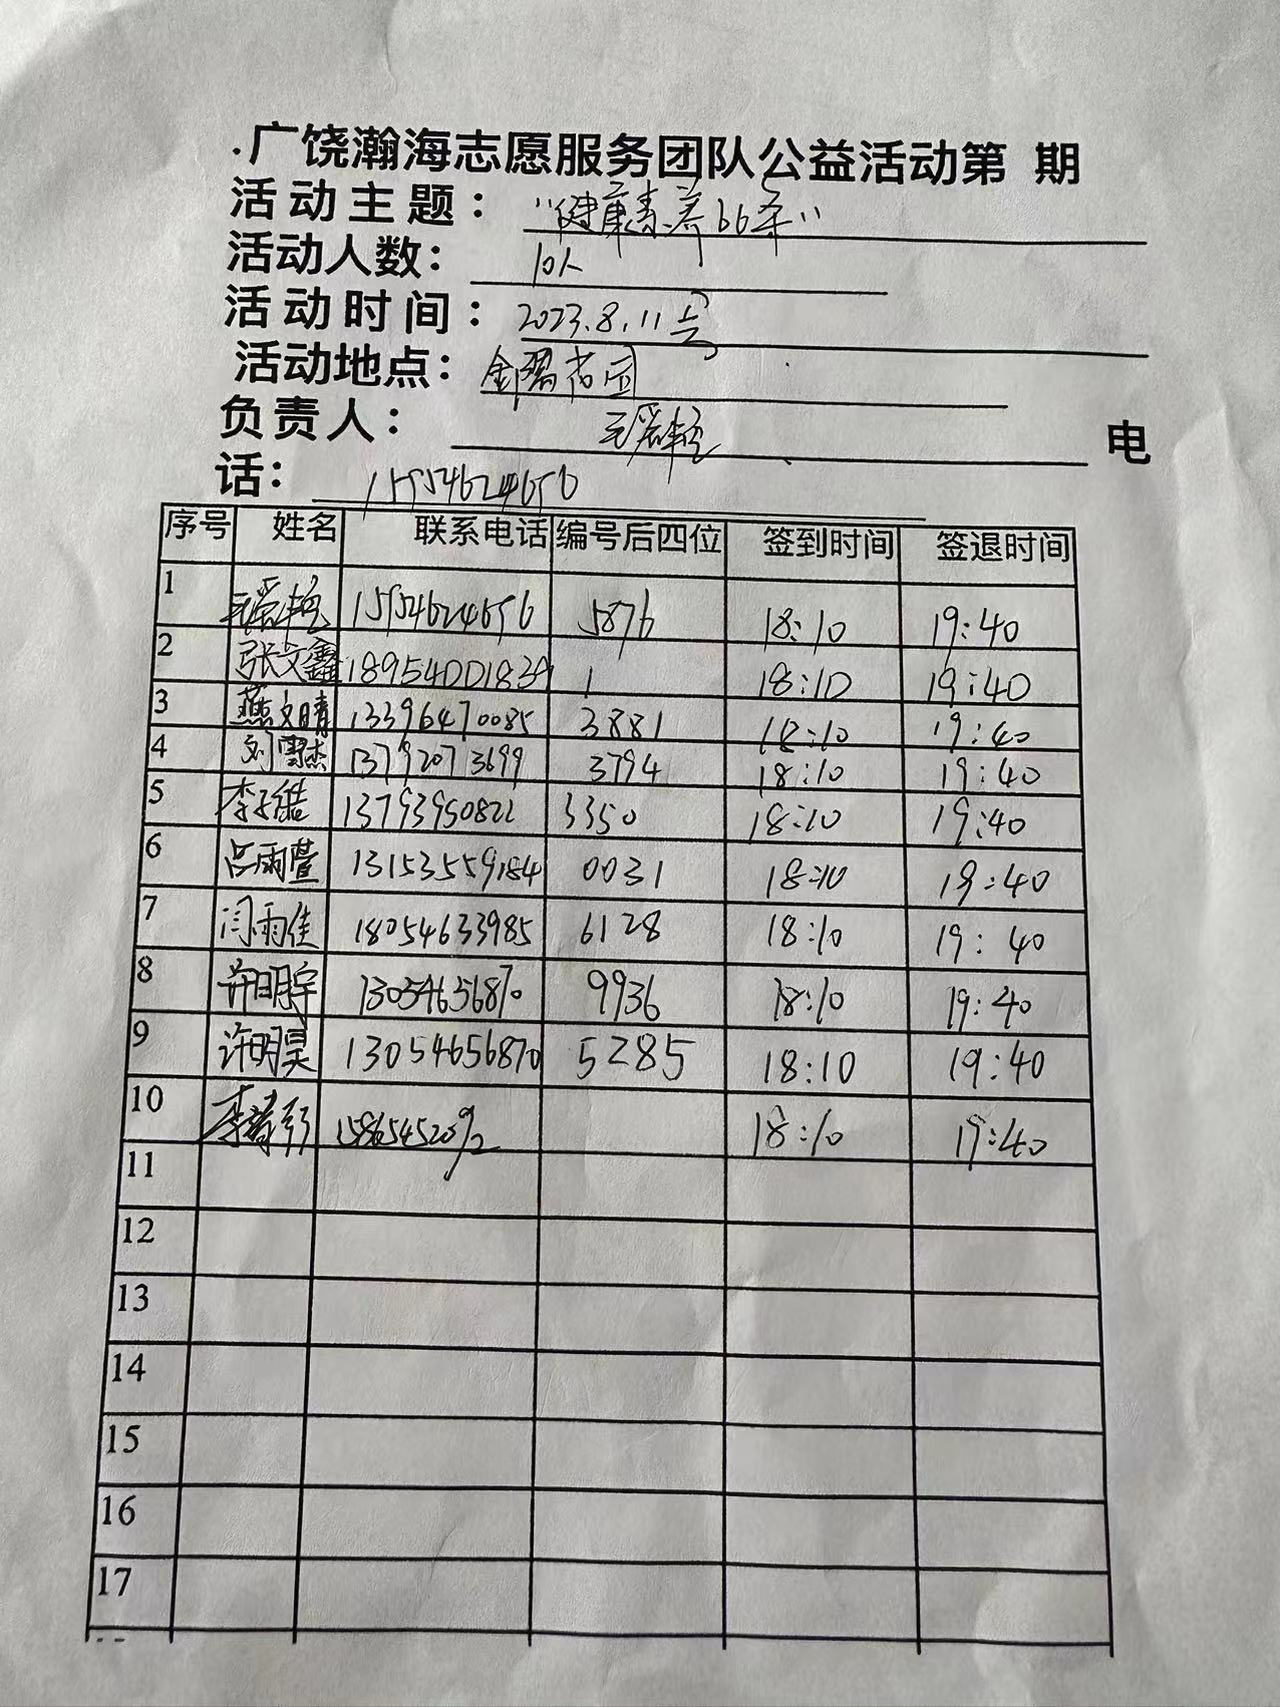 .广饶瀚海志愿服务团队公益活动第 期
活动主题：“健康素养66条”
活动人数：10人
活动时间：2023.8.11号
活动地点：
负责人： 电
话：15954624656
序号 姓名 联系电话 编号后四位 签到时间 签退时间
1 15954624656 5876 18:10 19:40
2 张文鑫 18954001839 1 18:10 19:40
3 燕文晴 13396470085 3881 18:10 19:40
4 刘雪杰 13792073699 3794 18:10 19:40
5 李子皓 13793950822 3350 18:10 19:40
6 吕雨萱 13153559184 0031 18:10 19:40
7 闫雨佳 18054633985 6128 18:10 19:40
8 许明宇 13054656870 9936 18:10 19:40
9 许明昊 13054656870 5285 18:10 19:40
10 18:10 19:40
11
12
13
14
15
16
17